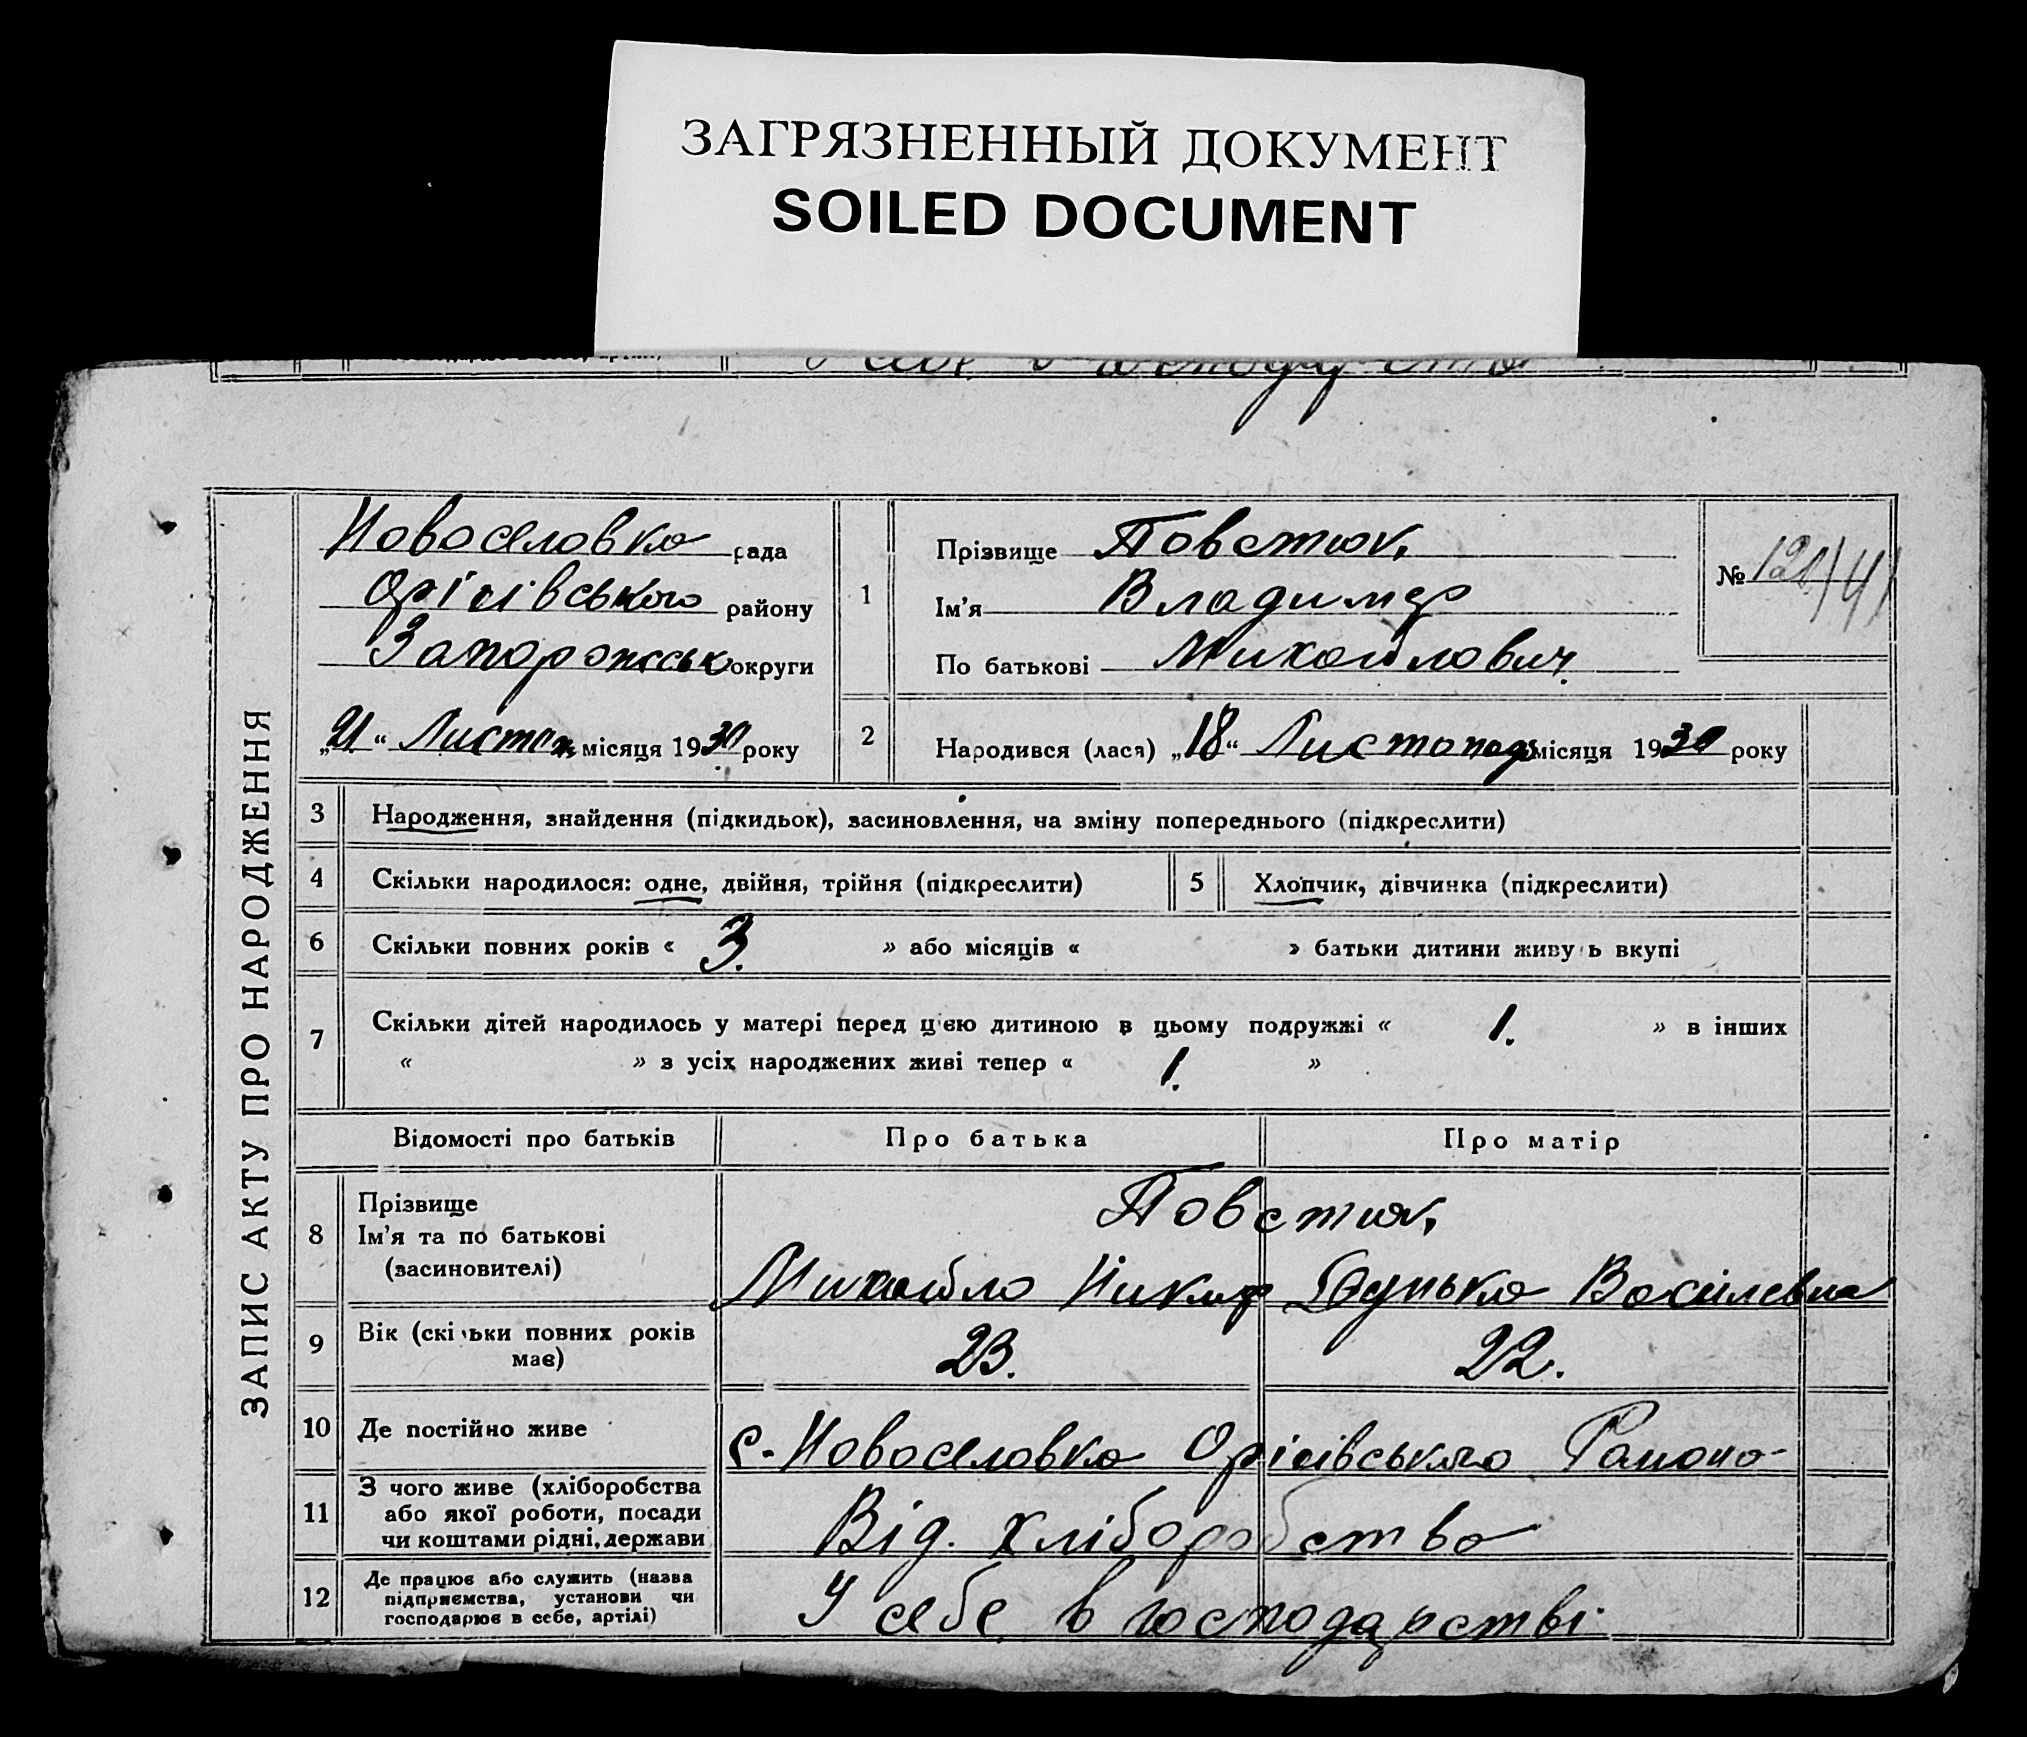 ЗАГРЯЗНЕННЫЙ ДОКУМЕНТ
SOILED DOCUMENT
ЗАПИС АКТУ ПРО НАРОДЖЕННЯ
Новоселовка рада
Оріхівського району
Запорожськ округи
„21“ Листоп. місяця 1930 року
1 Прізвище Повстюк.
Ім'я Владимер
По батькові Михайлович.
№ 121
2 Народився (лася) „18“ Листопада місяця 1930 року
3 Народження, знайдення (підкидьок), засиновлення, на зміну попереднього (підкреслити)
4 Скільки народилося: одне, двійня, трійня (підкреслити) 5 Хлопчик, дівчинка (підкреслити)
6 Скільки повних років « 3. » або місяців « » батьки дитини живуть вкупі
7 Скільки дітей народилось у матері перед цією дитиною в цьому подружжі « 1. » в інших
« » з усіх народжених живі тепер « 1. »
Відомості про батьків Про батька Про матір
8 Прізвище
Ім'я та по батькові
(засиновителі)
Повстюк.
Михайло Никиф Дунька Васілевна
9 Вік (скільки повних років
має)
23. 22.
10 Де постійно живе
с. Новоселовка Оріхівського Району
11 З чого живе (хліборобства
або якої роботи, посади
чи коштами рідні, держави
Від. хліборобства
12 Де працює або служить (назва
підприємства, установи чи
господарює в себе, артілі)
У себе в господарстві